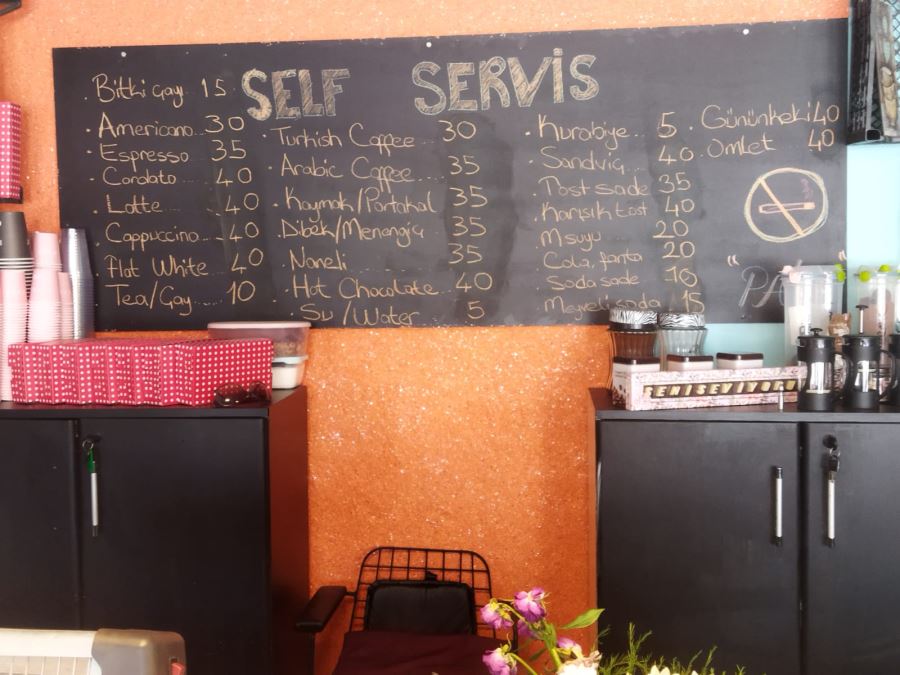 SELF SERVİS
Bitki çay 15
Americano 30
Espresso 35
Cordato 40
Latte 40
Cappuccino 40
Flat White 40
Tea/Çay 10
Turkish Coffee 30
Arabic Coffee 35
Kaymak/Portakal 35
Dibek/Menengiç 35
Naneli 35
Hot Chocolate 40
Su/Water 5
Kurabiye 5
Sandviç 40
Tost sade 35
Karışık tost 40
M suyu 20
Cola, fanta 20
Soda sade 10
Meyveli soda 15
Gününkeki 40
Omlet 40